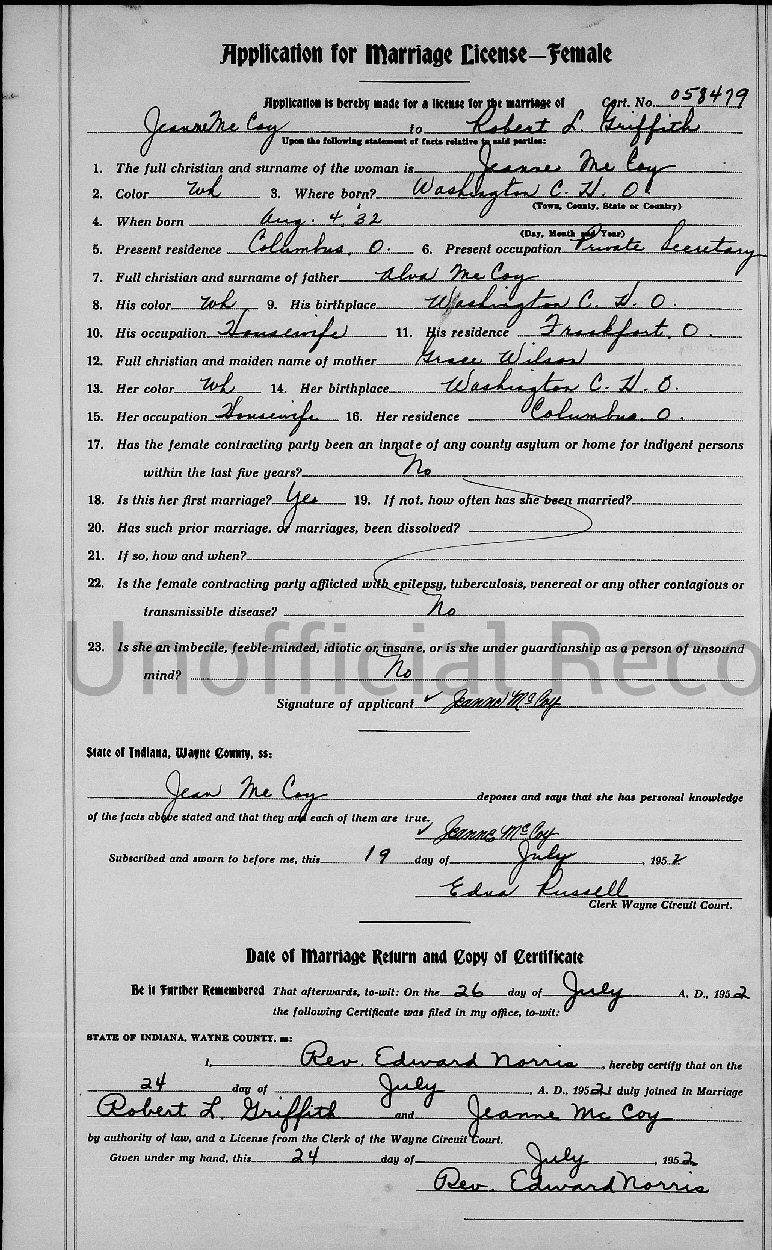 Application for Marriage License—Female
Application is hereby made for a license for the marriage of Cert. No. 058479
Jeanne Mc Coy to Robert L. Griffith
Upon the following statement of facts relative to said parties:
1. The full christian and surname of the woman is Jeanne Mc Coy
2. Color Wh 3. Where born? Washington C. H. O.
(Town, County, State or Country)
4. When born Aug. 4, 32
(Day, Month and Year)
5. Present residence Columbus, O. 6. Present occupation Private Secretary
7. Full christian and surname of father Alva Mc Coy
8. His color Wh 9. His birthplace Washington C. H. O.
10. His occupation Housewife 11. His residence Frankfort, O.
12. Full christian and maiden name of mother Grace Wilson
13. Her color Wh 14. Her birthplace Washington C. H. O.
15. Her occupation Housewife 16. Her residence Columbus O.
17. Has the female contracting party been an inmate of any county asylum or home for indigent persons
within the last five years? No
18. Is this her first marriage? Yes 19. If not, how often has she been married?
20. Has such prior marriage, or marriages, been dissolved?
21. If so, how and when?
22. Is the female contracting party afflicted with epilepsy, tuberculosis, venereal or any other contagious or
transmissible disease? No
23. Is she an imbecile, feeble-minded, idiotic or insane, or is she under guardianship as a person of unsound
Unofficial Reco
mind? No
Signature of applicant ✓ Jeanne McCoy
State of Indiana, Wayne County, ss:
Jean Mc Coy deposes and says that she has personal knowledge
of the facts above stated and that they and each of them are true.
✓ Jeanne McCoy
Subscribed and sworn to before me, this 19 day of July, 1952
Edna Russell
Clerk Wayne Circuit Court.
Date of Marriage Return and Copy of Certificate
Be it Further Remembered That afterwards, to-wit: On the 26 day of July A. D., 1952
the following Certificate was filed in my office, to-wit:
STATE OF INDIANA, WAYNE COUNTY, ss:
I, Rev. Edward Norris, hereby certify that on the
24 day of July, A. D., 1952 I duly joined in Marriage
Robert L. Griffith and Jeanne Mc Coy
by authority of law, and a License from the Clerk of the Wayne Circuit Court.
Given under my hand, this 24 day of July, 1952
Rev. Edward Norris